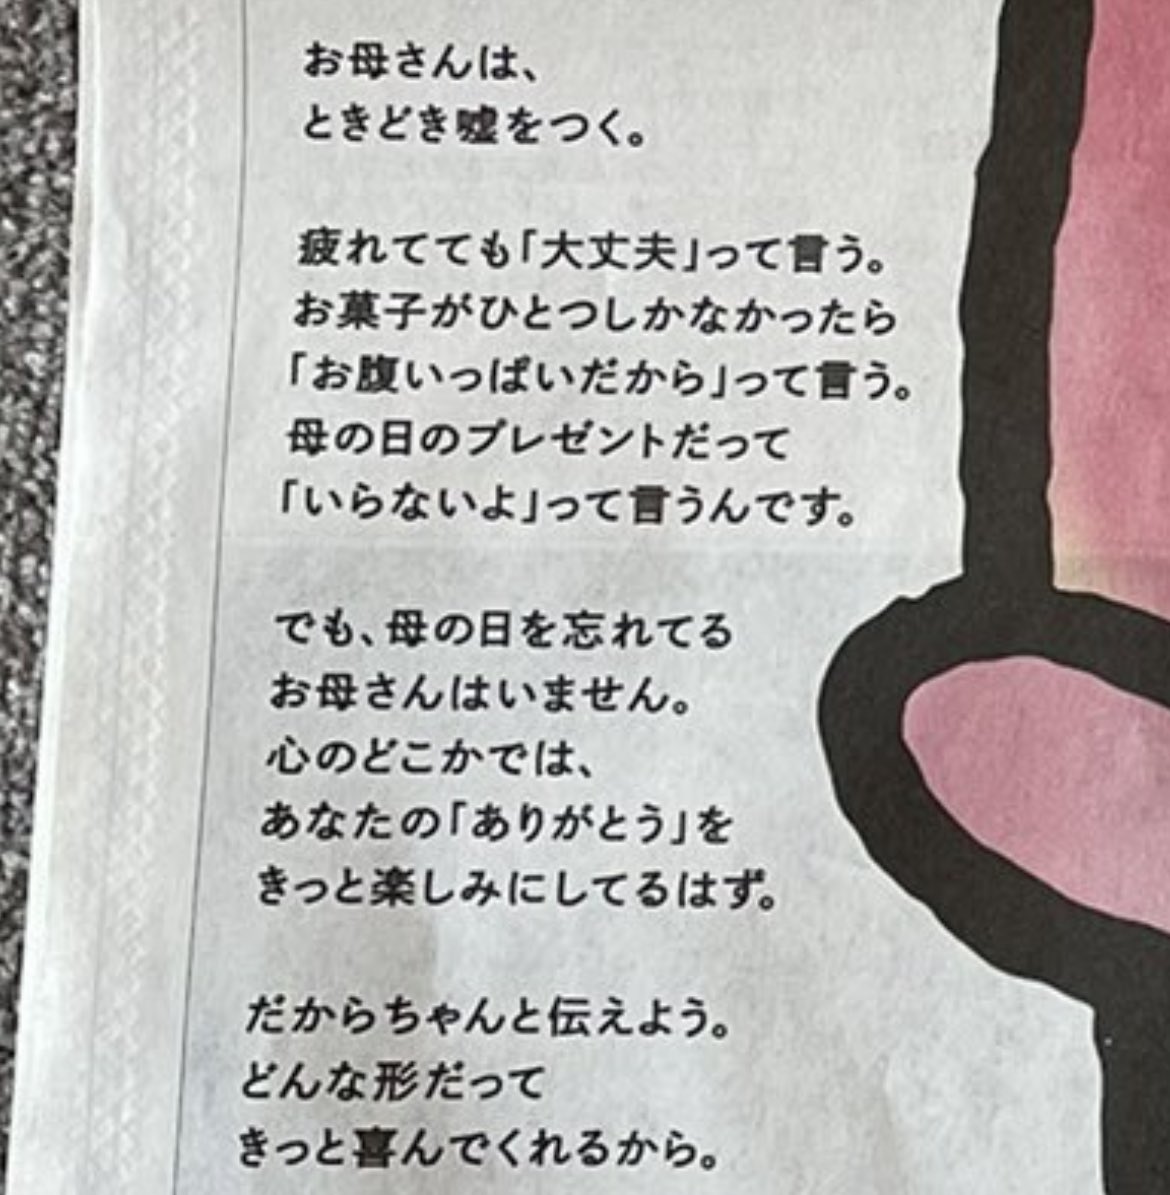 お母さんは、
ときどき嘘をつく。
疲れてても「大丈夫」って言う。
お菓子がひとつしかなかったら
「お腹いっぱいだから」って言う。
母の日のプレゼントだって
「いらないよ」って言うんです。
でも、母の日を忘れてる
お母さんはいません。
心のどこかでは、
あなたの「ありがとう」を
きっと楽しみにしてるはず。
だからちゃんと伝えよう。
どんな形だって
きっと喜んでくれるから。